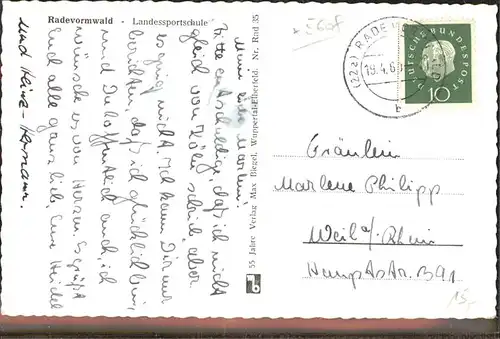 Radevormwald - Landessportschule
Meine liebe Marlene!
Bitte entschuldige, daß ich nicht
gleich von Köln schrieb, aber
es ging nicht. Ich kann Dir nur
berichten, daß ich glücklich bin,
und Du hoffentlich auch, ich
wünsche es von Herzen. Es grüßt
Euch alle ganz lieb Eure Heidel
und Heinz-Hermann.
55 Jahre Verlag Max Biegel, Wuppertal-Elberfeld. Nr. Rad 35
(22a) RADEVORMWALD
19.4.60
b
DEUTSCHE BUNDESPOST
10
Fräulein
Marlene Philipp
Weil a/Rhein
Hauptstr. 391